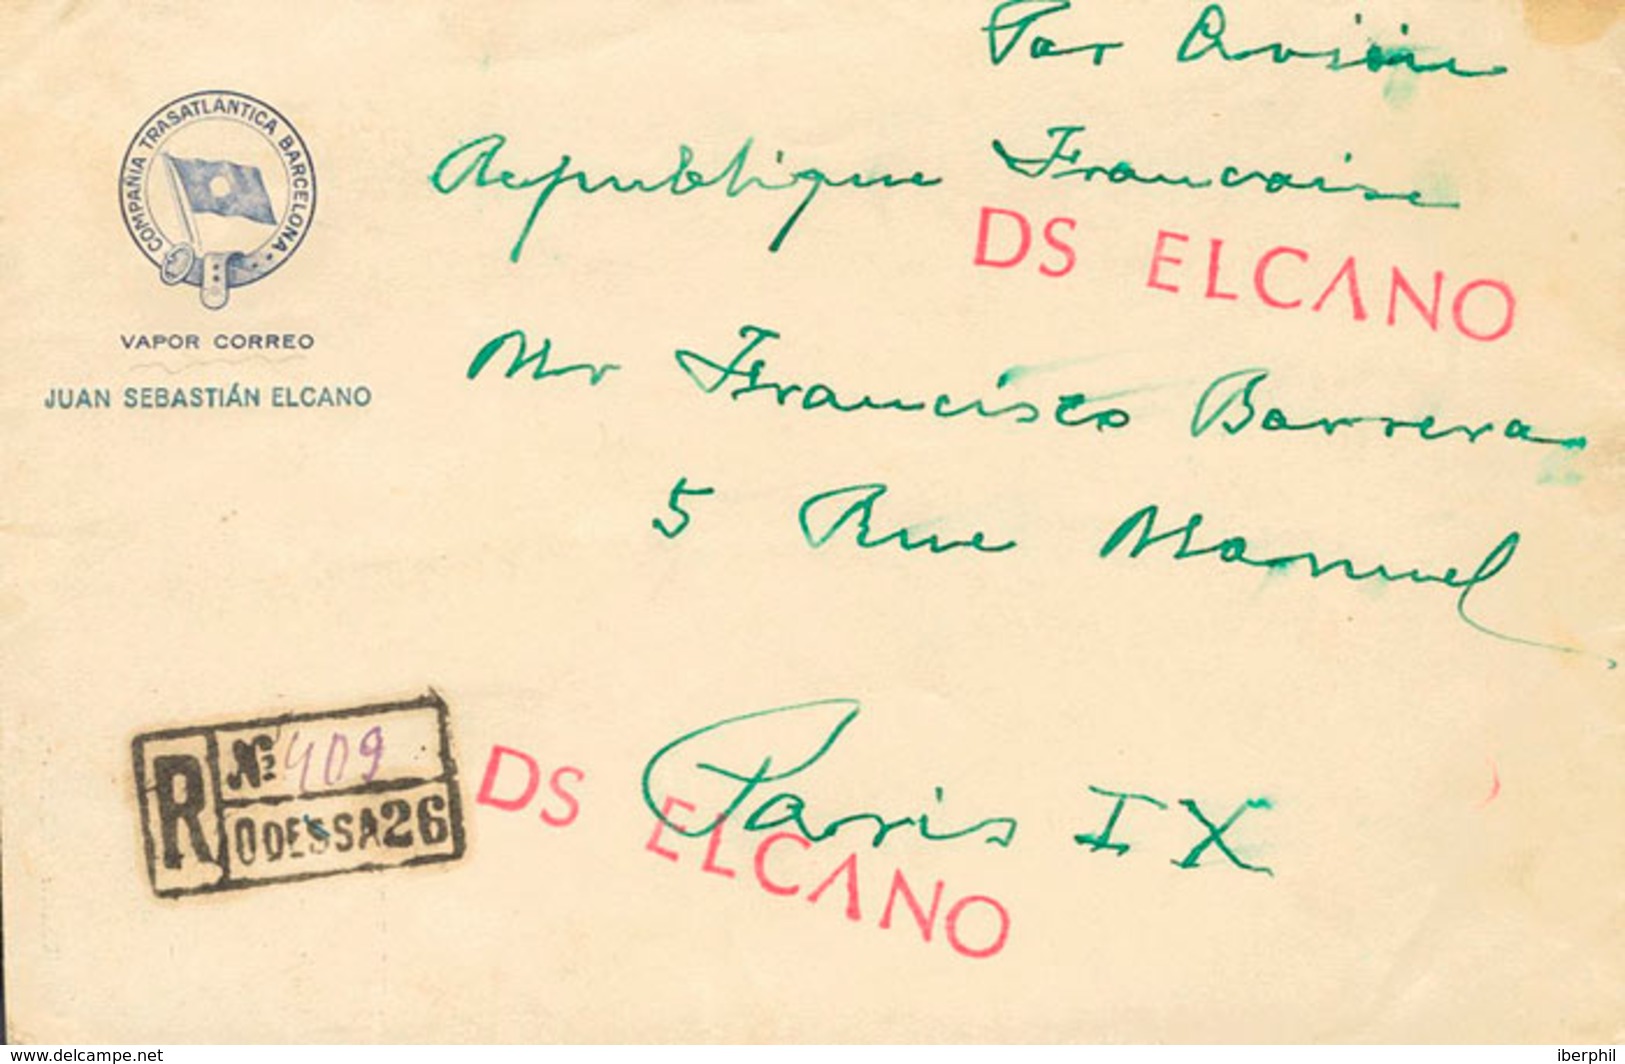 Par Avion
COMPAÑIA TRASATLÁNTICA BARCELONA
Republique Francaise
DS ELCANO
VAPOR CORREO
Mr Francisco Barrera
JUAN SEBASTIÁN ELCANO
5 Rue Manuel
R
№ 409
ODESSA 26
Paris IX
DS ELCANO
www.delcampe.net
iberphil